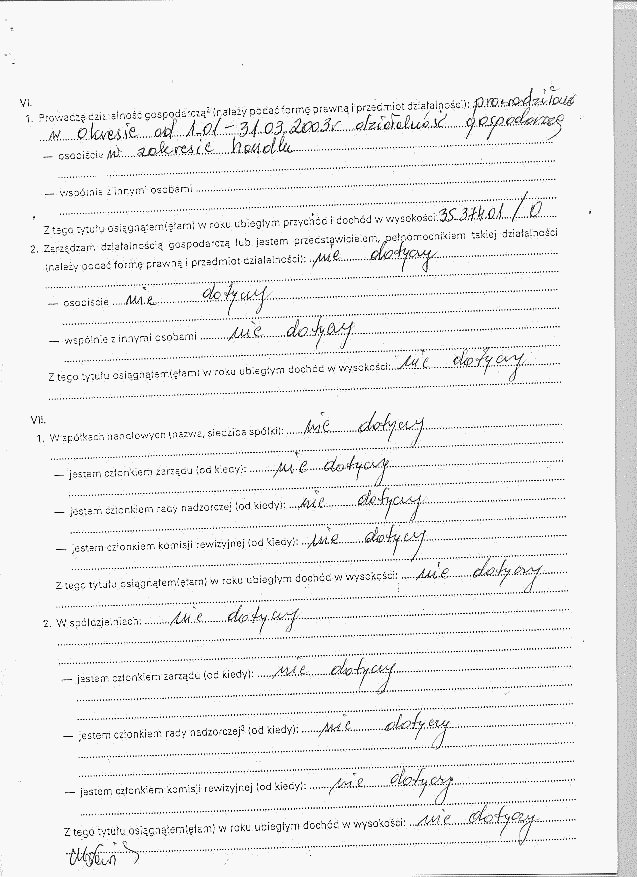 VI.
1. Prowadzę działalność gospodarczą² (należy podać formę prawną i przedmiot działalności): prowadziłam
w okresie od 1.01 – 31.03.2003r działalność gospodarczą
— osobiście w zakresie handlu
— wspólnie z innymi osobami
Z tego tytułu osiągnąłem(ęłam) w roku ubiegłym przychód i dochód w wysokości: / 0
2. Zarządzam działalnością gospodarczą lub jestem przedstawicielem, pełnomocnikiem takiej działalności
(należy podać formę prawną i przedmiot działalności): nie dotyczy
— osobiście nie dotyczy
— wspólnie z innymi osobami nie dotyczy
Z tego tytułu osiągnąłem(ęłam) w roku ubiegłym dochód w wysokości: nie dotyczy
VII.
1. W spółkach handlowych (nazwa, siedziba spółki): nie dotyczy
— jestem członkiem zarządu (od kiedy): nie dotyczy
— jestem członkiem rady nadzorczej (od kiedy): nie dotyczy
— jestem członkiem komisji rewizyjnej (od kiedy): nie dotyczy
Z tego tytułu osiągnąłem(ęłam) w roku ubiegłym dochód w wysokości: nie dotyczy
2. W spółdzielniach: nie dotyczy
— jestem członkiem zarządu (od kiedy): nie dotyczy
— jestem członkiem rady nadzorczej³ (od kiedy): nie dotyczy
— jestem członkiem komisji rewizyjnej (od kiedy): nie dotyczy
Z tego tytułu osiągnąłem(ęłam) w roku ubiegłym dochód w wysokości: nie dotyczy